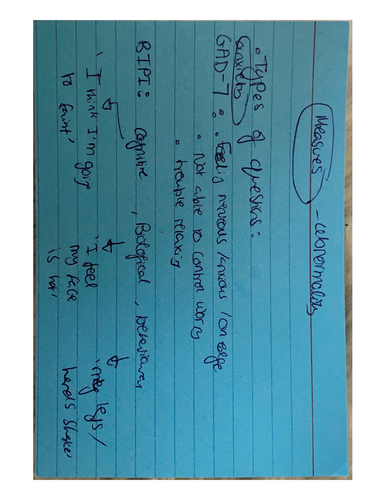 Measures - abnormality
• Types of questions:
(anxiety)
GAD-7 • Feeling nervous / anxious / on edge
• Not able to control worry
• trouble relaxing
BIPI: cognitive, Biological, behavioural
'I think I'm going to faint'
'I feel my face is hot'
'my legs / hands shake'